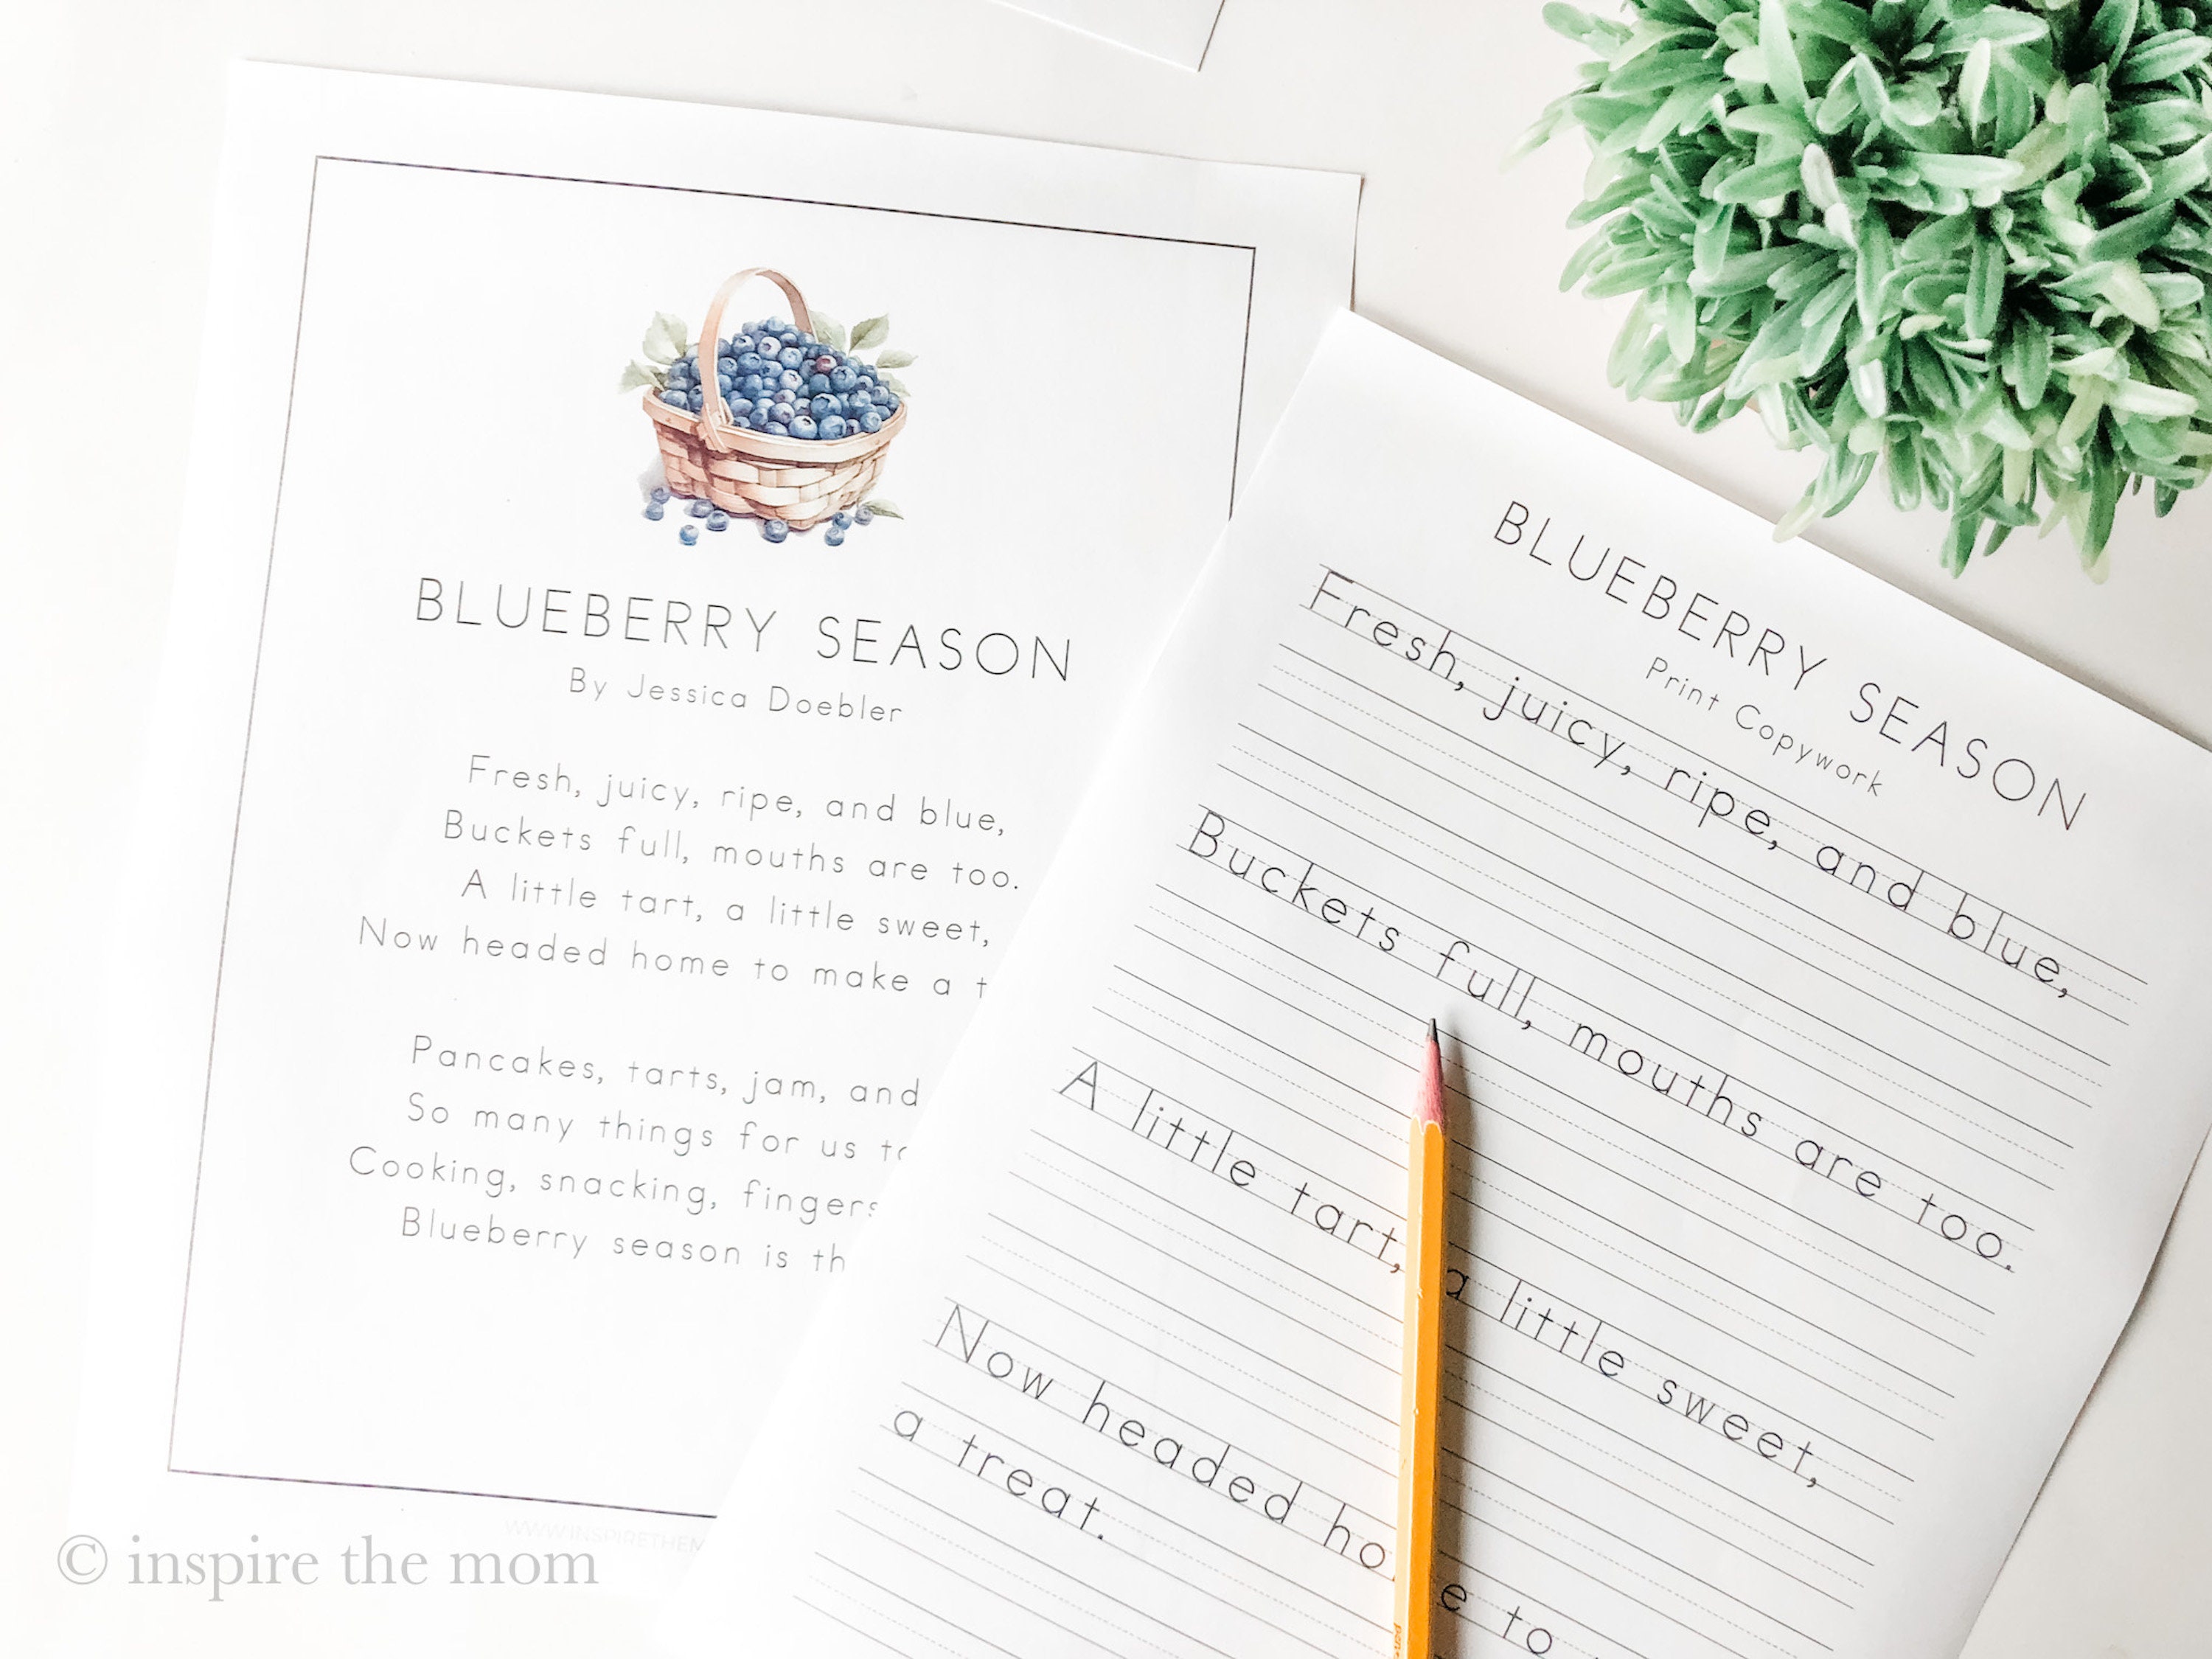 BLUEBERRY SEASON
By Jessica Doebler
Fresh, juicy, ripe, and blue,
Buckets full, mouths are too.
A little tart, a little sweet,
Now headed home to make a t
Pancakes, tarts, jam, and
So many things for us to
Cooking, snacking, fingers
Blueberry season is th
BLUEBERRY SEASON
Print Copywork
Fresh, juicy, ripe, and blue,
Buckets full, mouths are too.
A little tart, a little sweet,
Now headed home to
a treat.
© inspire the mom